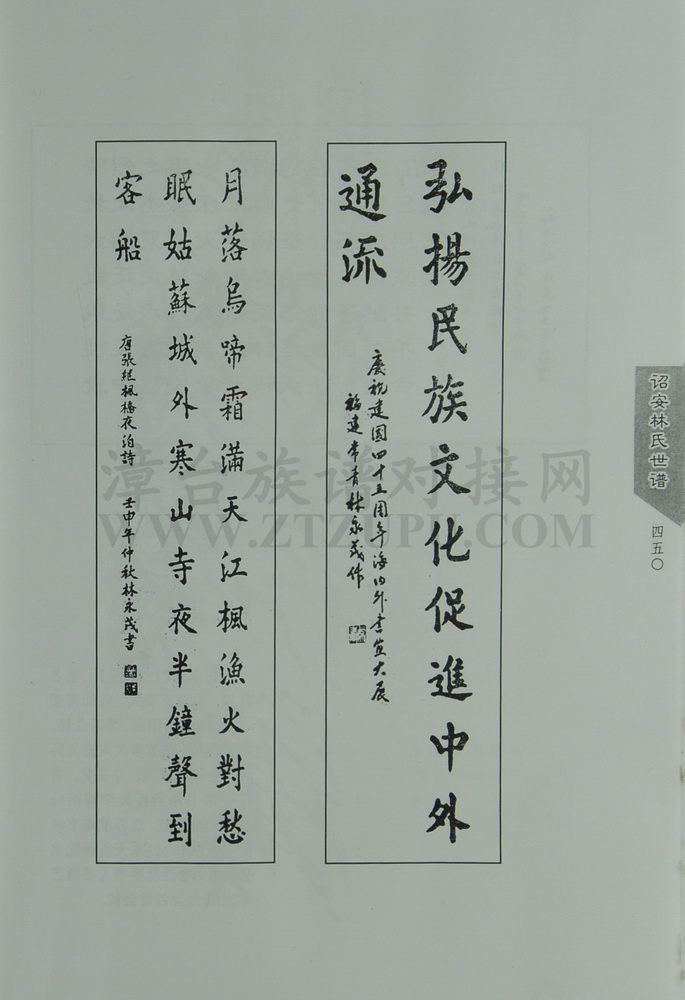 弘揚民族文化促進中外
通流
慶祝建國四十五周年海内外書畫大展
福建常青林永茂作
月落烏啼霜滿天江楓漁火對愁
眠姑蘇城外寒山寺夜半鐘聲到
客船
唐張继楓橋夜泊詩 壬申年仲秋林永茂書
诏安林氏世谱
四五〇
漳台族谱对接网
WWW.ZTZUPU.COM